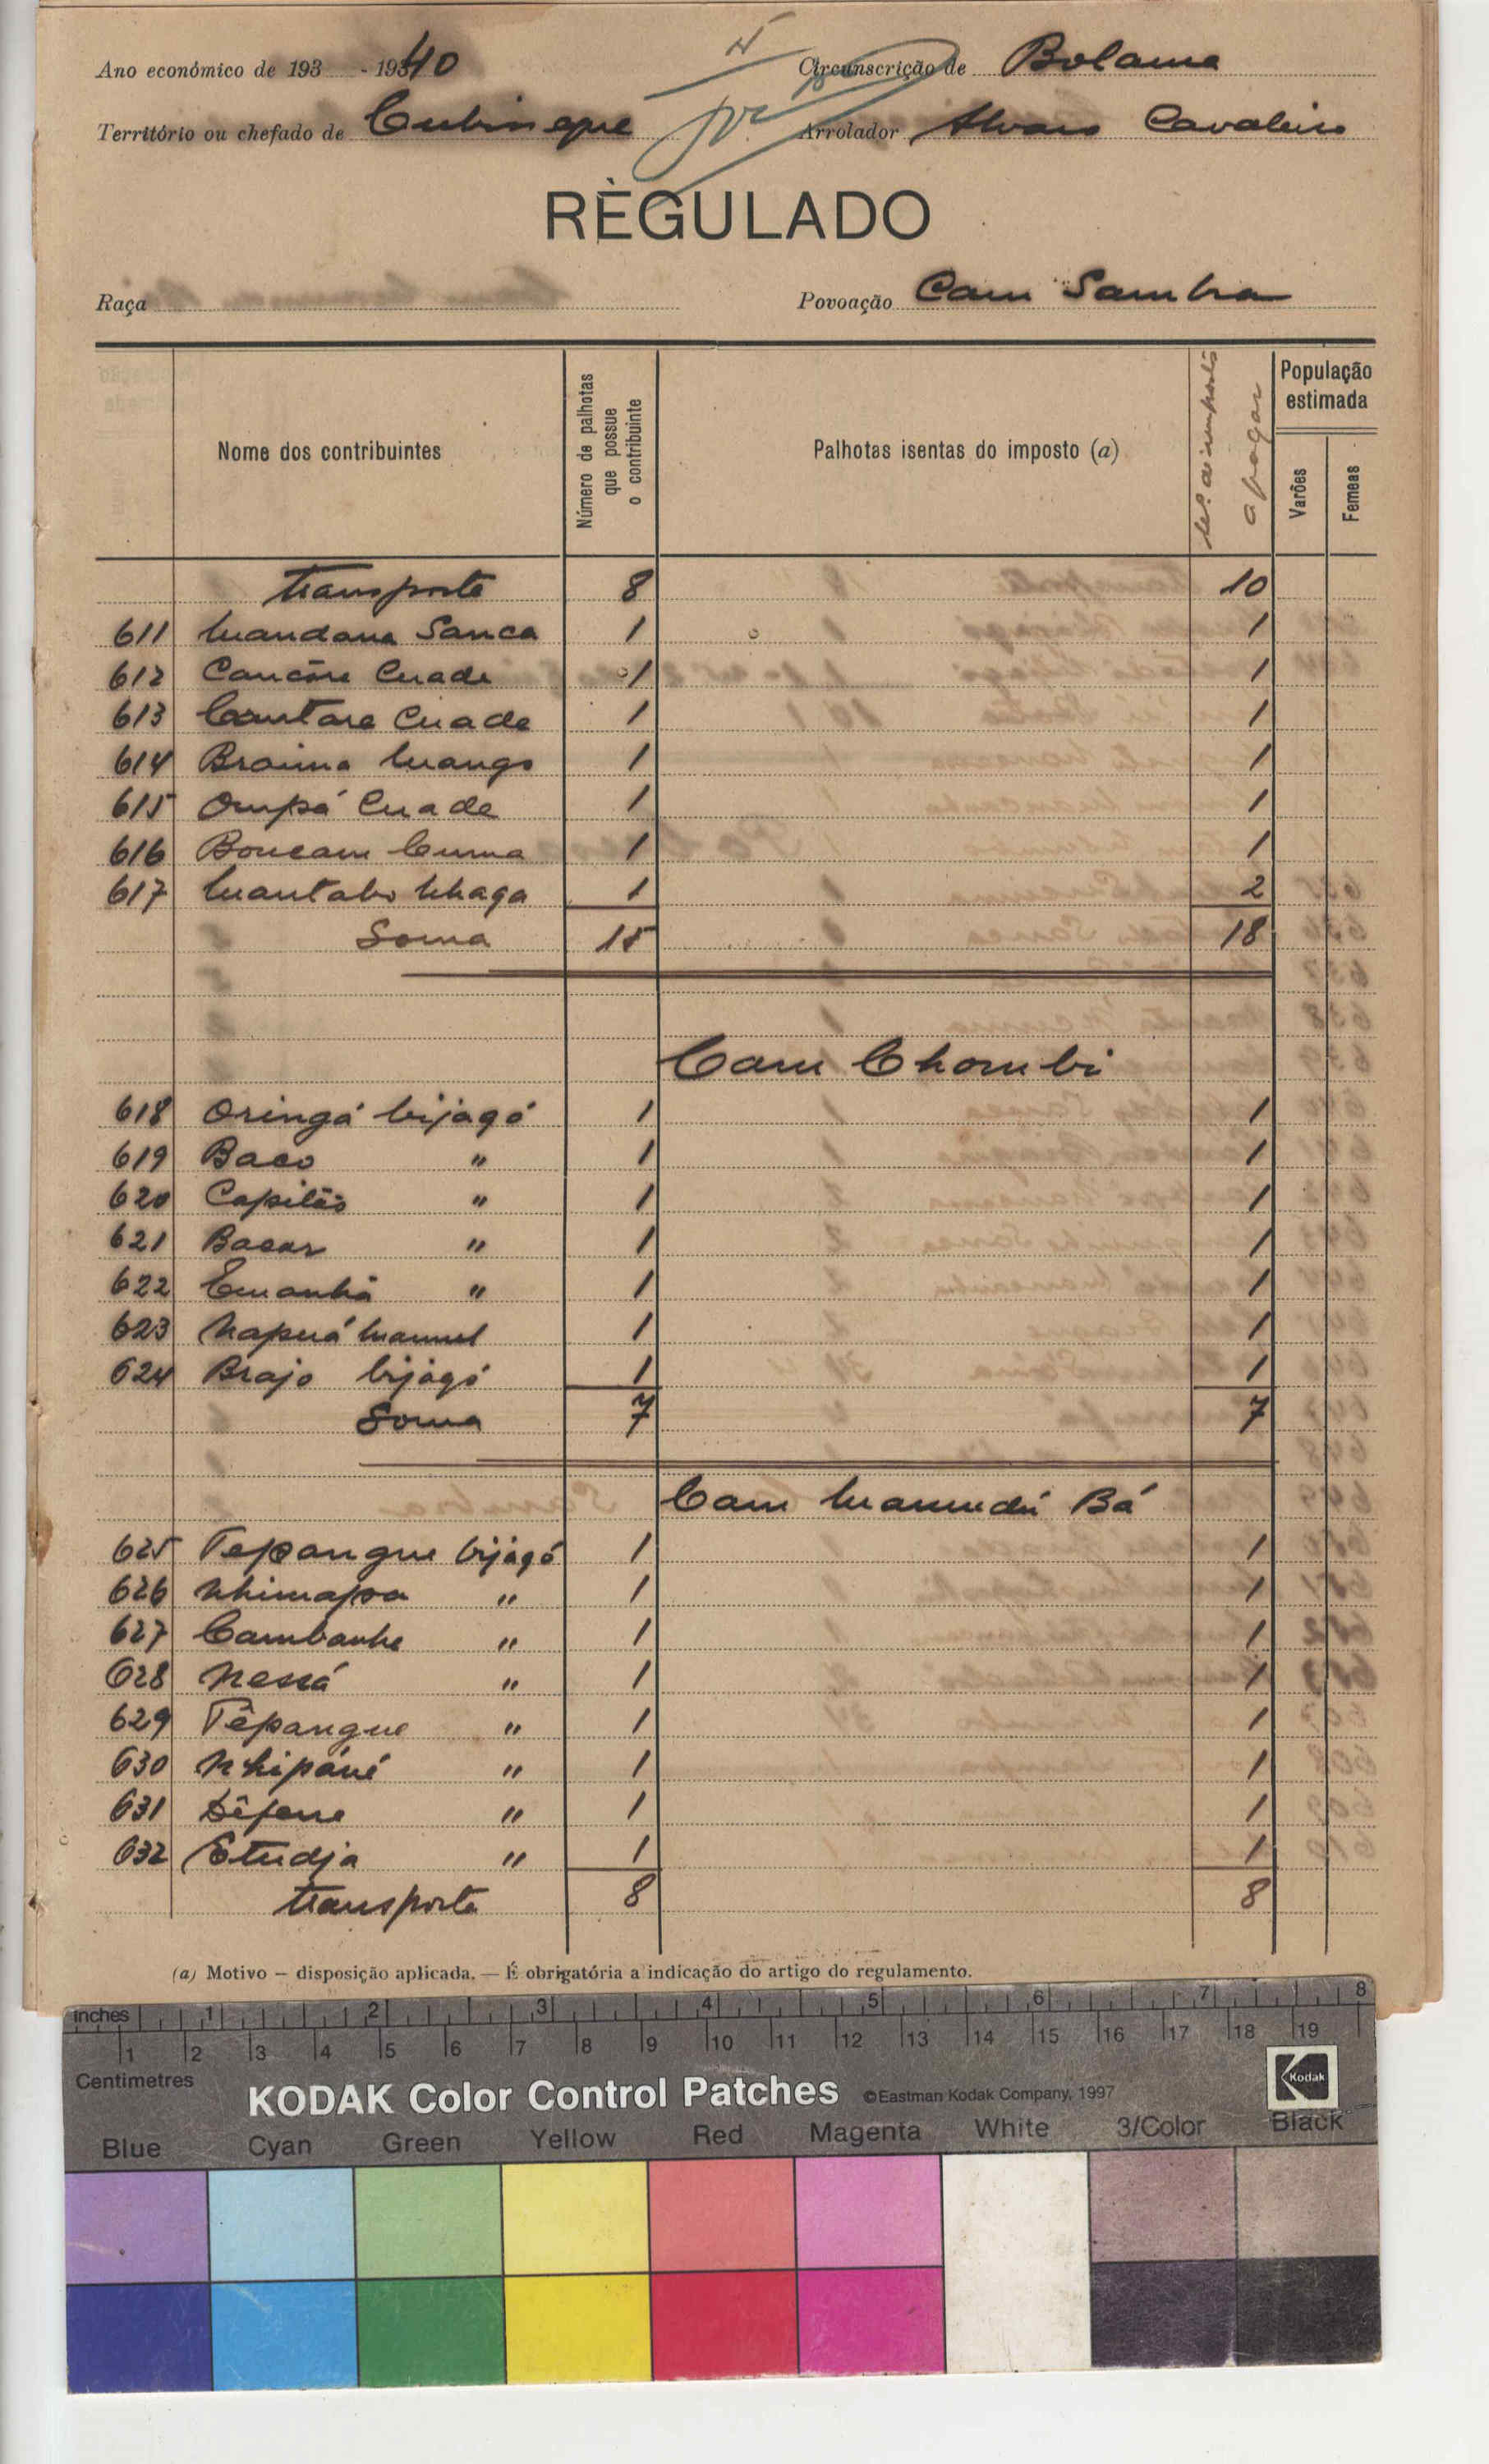 Ano económico de 193 - 1940 Circunscrição de Bolama
Território ou chefado de Arrolador Alvaro Cavaleiro
REGULADO
Raça Povoação Cam Sambra
Nome dos contribuintes
Número de palhotas que possue o contribuinte
Palhotas isentas do imposto (a)
de imposto a pagar
População estimada
Varões
Femeas
transporte 8 10
611 Mandana Sanca 1 1
612 Cancóre Cuade 1 1
613 Coutare Cuade 1 1
614 Braima Mango 1 1
615 Ompá Cuade 1 1
616 Boucam Cuma 1 1
617 Mantabo Uhaga 1 2
Soma 15 18
Cam Chombi
618 Oringá bijagó 1 1
619 Baco " 1 1
620 Capitão " 1 1
621 Bacar " 1 1
622 Emanhã " 1 1
623 Napuá Manuel 1 1
624 Brajo bijagó 1 1
Soma 7 7
Cam Mamudú Bá
625 Tepangue bijagó 1 1
626 Nhimapa " 1 1
627 Cambanhe " 1 1
628 " 1 1
629 Têpangue " 1 1
630 Nhipáné " 1 1
631 " 1 1
632 Etudja " 1 1
transporte 8 8
(a) Motivo — disposição aplicada. — É obrigatória a indicação do artigo do regulamento.
inches 1 2 3 4 5 6 7 8
1 2 3 4 5 6 7 8 9 10 11 12 13 14 15 16 17 18 19
Centimetres
KODAK Color Control Patches ©Eastman Kodak Company, 1997 Kodak
Blue Cyan Green Yellow Red Magenta White 3/Color Black